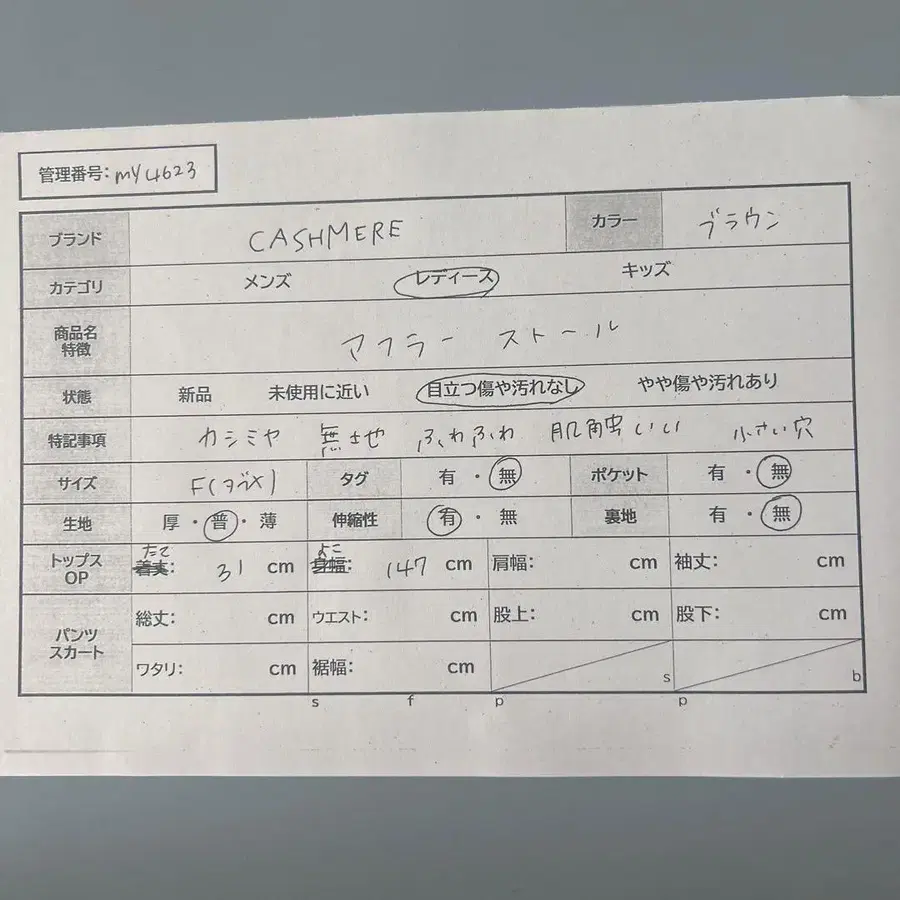 管理番号: my4623
ブランド CASHMERE カラー ブラウン
カテゴリ メンズ レディース キッズ
商品名
特徴 マフラー ストール
状態 新品 未使用に近い 目立つ傷や汚れなし やや傷や汚れあり
特記事項 カシミヤ 無地 ふわふわ 肌触いい 小さい穴
サイズ F タグ 有・無 ポケット 有・無
生地 厚・普・薄 伸縮性 有・無 裏地 有・無
トップス
OP たて 着丈: 31 cm よこ 身幅: 147 cm 肩幅: cm 袖丈: cm
パンツ
スカート 総丈: cm ウエスト: cm 股上: cm 股下: cm
ワタリ: cm 裾幅: cm s b
s f p p